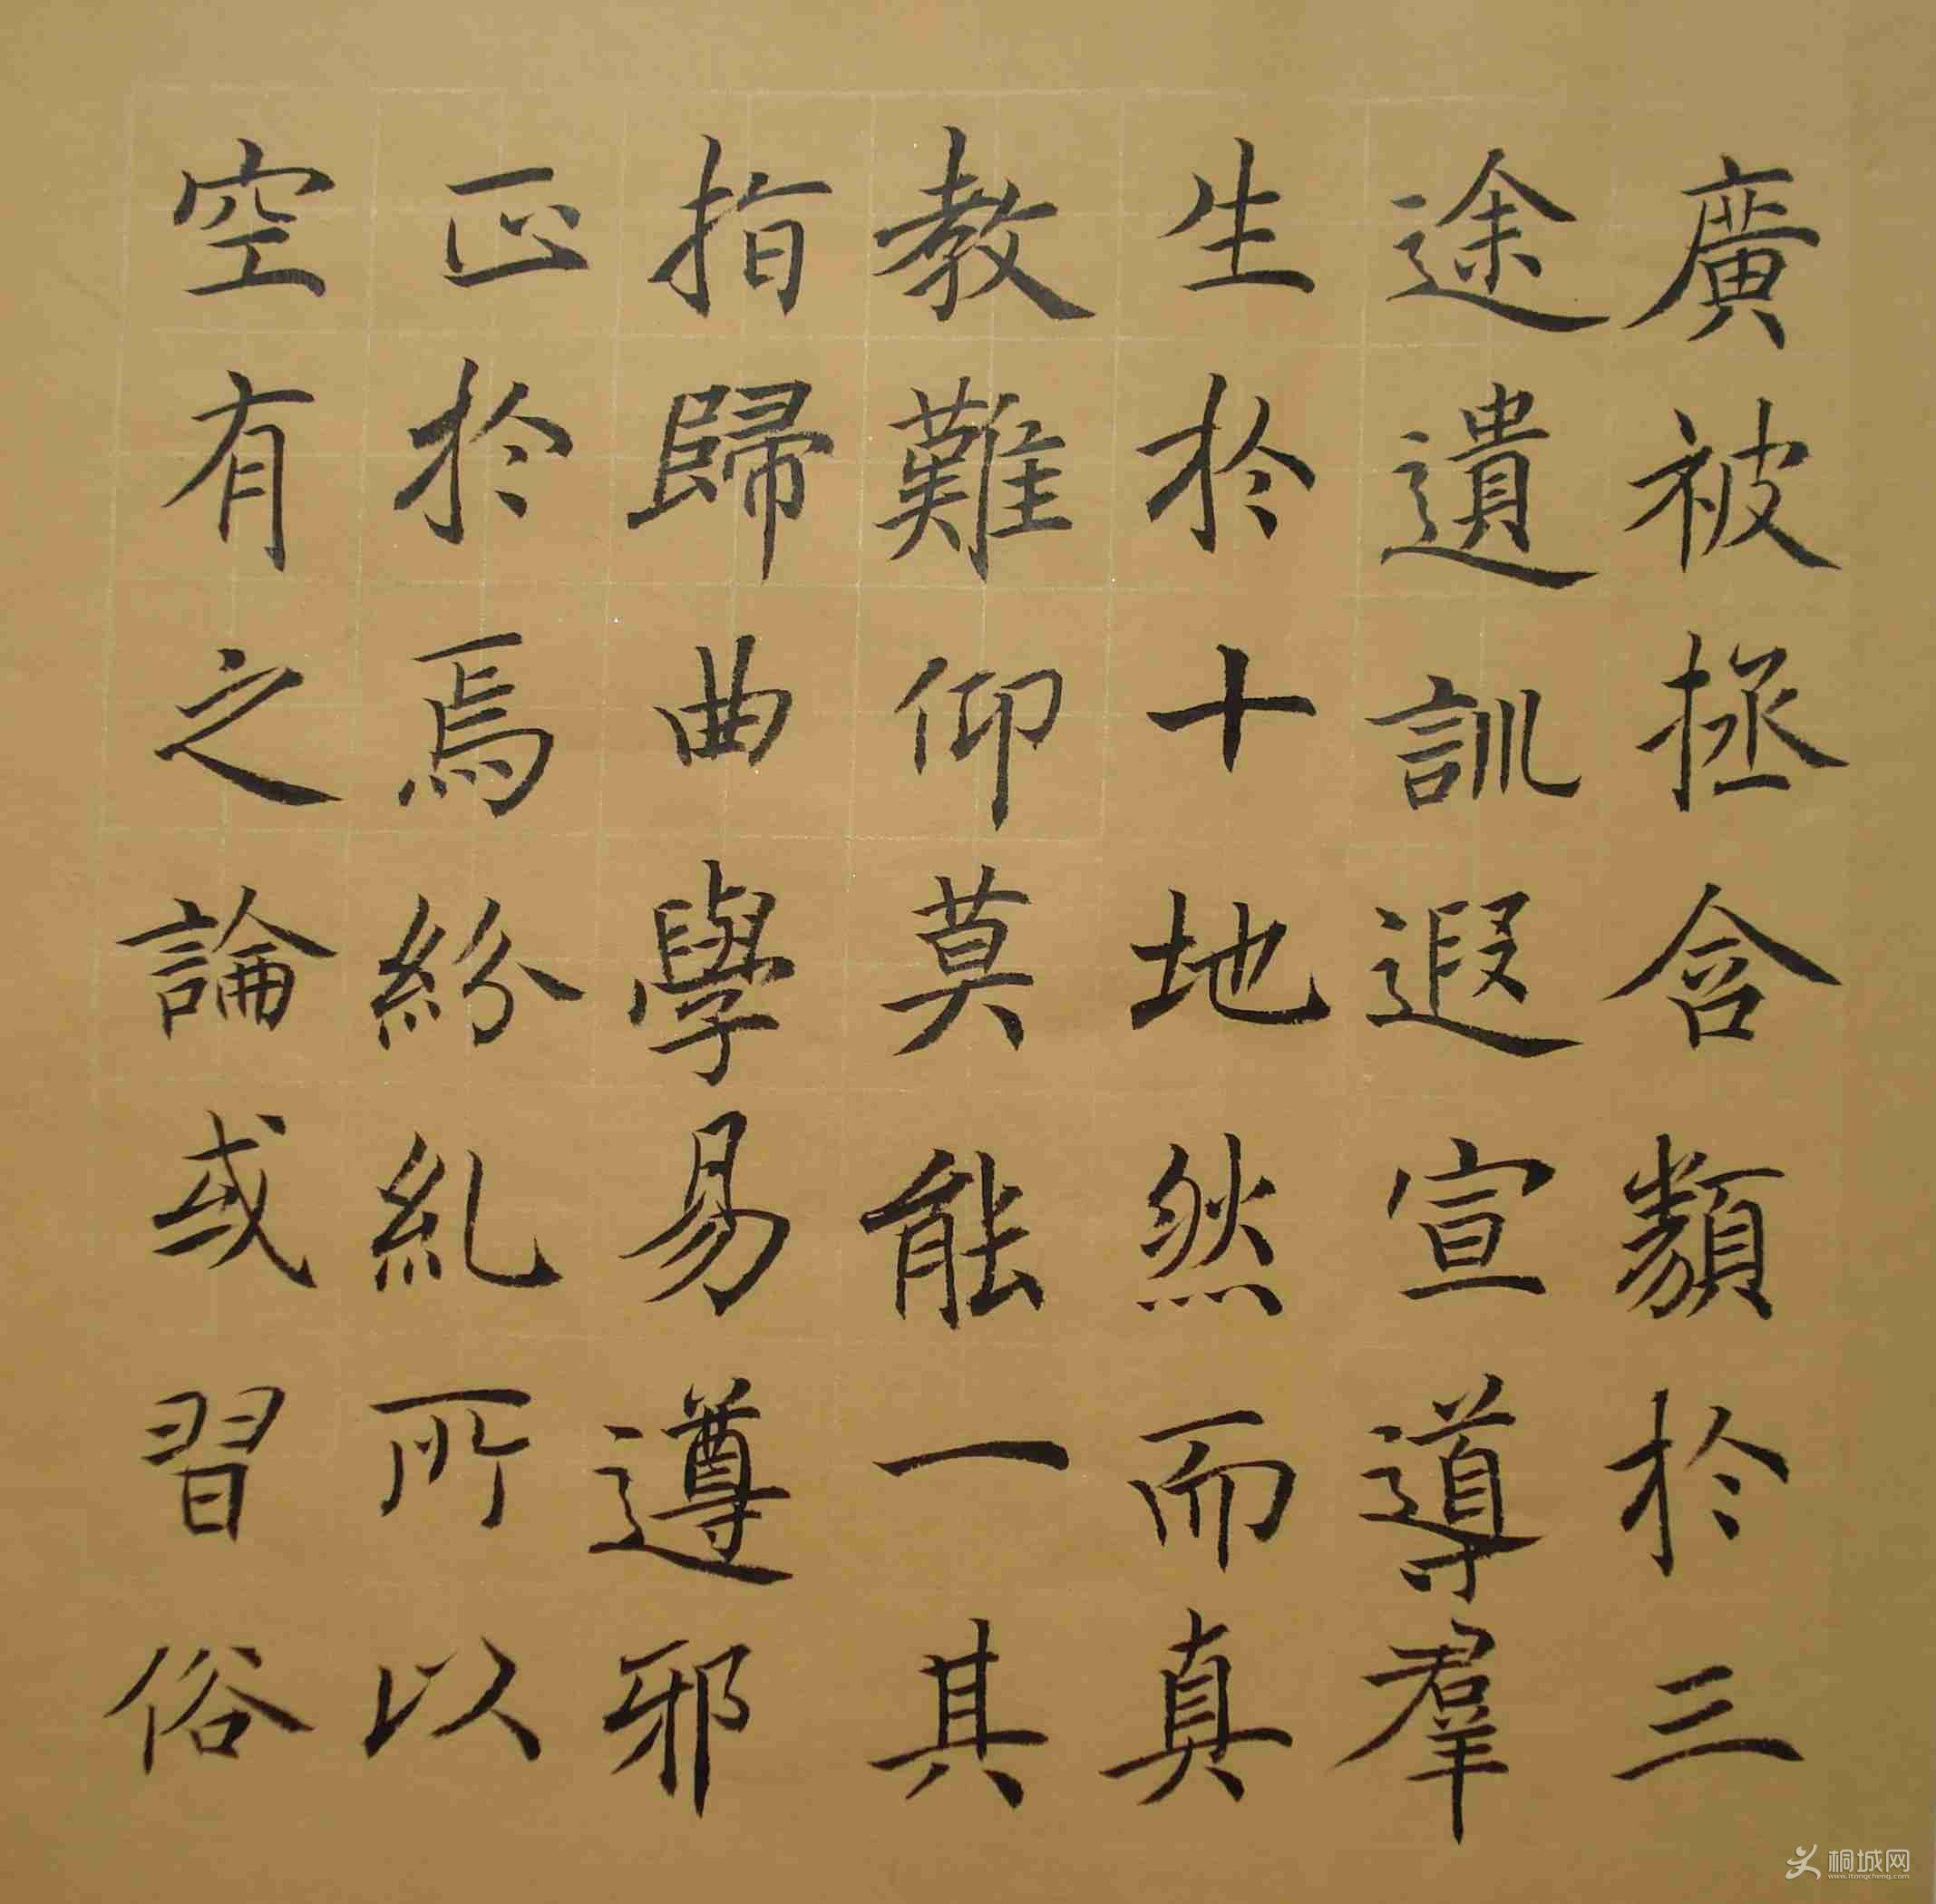 廣被拯含類於三
途遺訓遐宣導羣
生於十地然而真
教難仰莫能一其
指歸曲學易遵邪
正於焉紛糺所以
空有之論或習俗
桐城网
www.itongcheng.com